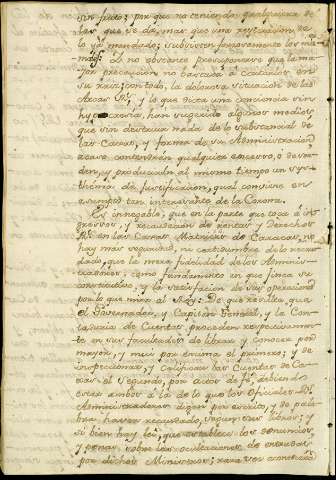 sin fruto; por que no teniendo qualquiera de
las que se dá, mas que una revocacion de
lo ya mandado; subsisten forzosamente los mis-
mos. Y no obstante presuponerse que la ma-
yor precaucion no bastará á cortarlos en
su raiz; con todo, la dolorosa situacion de las
Arcas Rs, y lo que dicta una conciencia sin
hypocrecia, han sugerido algunos medios,
que sin destruir nada de lo substancial de
las Caxas, y forma de su Administracion,
acaso contendrán qualquier exceso, o desor-
den, y producirán al mismo tiempo un sys-
thema de justificacion, qual conviene en
asumpto tan interesante de la Corona.
Es innegable, que en la parte que toca á in-
gresos, y recaudacion de rentas y Derechos
Rs en las Caxas Matrices de Caracas, no
hay mas seguridad, ni certidumbre de lo recau-
dado, que la mera fidelidad de los Adminis-
tradores, como fundamento en que finca su
constitucion, y la satisfacion de sus operaciones
por lo que mira al Rey: De que resulta, que
el Governador, y Capitan General, y la Con-
taduria de Cuentas, proceden respectivamen-
te en sus facultades de librar y conocer por
mayor, y mui por encima el primero; y de
inspeccionar, y calificar las Cuentas de Ca-
xas el segundo, por actos de fé, debiendo
estar ambos á la de lo que los Oficiales Rs
Administradores digan por escrito, y de pala-
bra haver recaudado, segun sus Libros; y
si bien hay lei, que establece los denuncios,
y penas sobre las ocultaciones de entradas
por dichos Ministros; rara vez